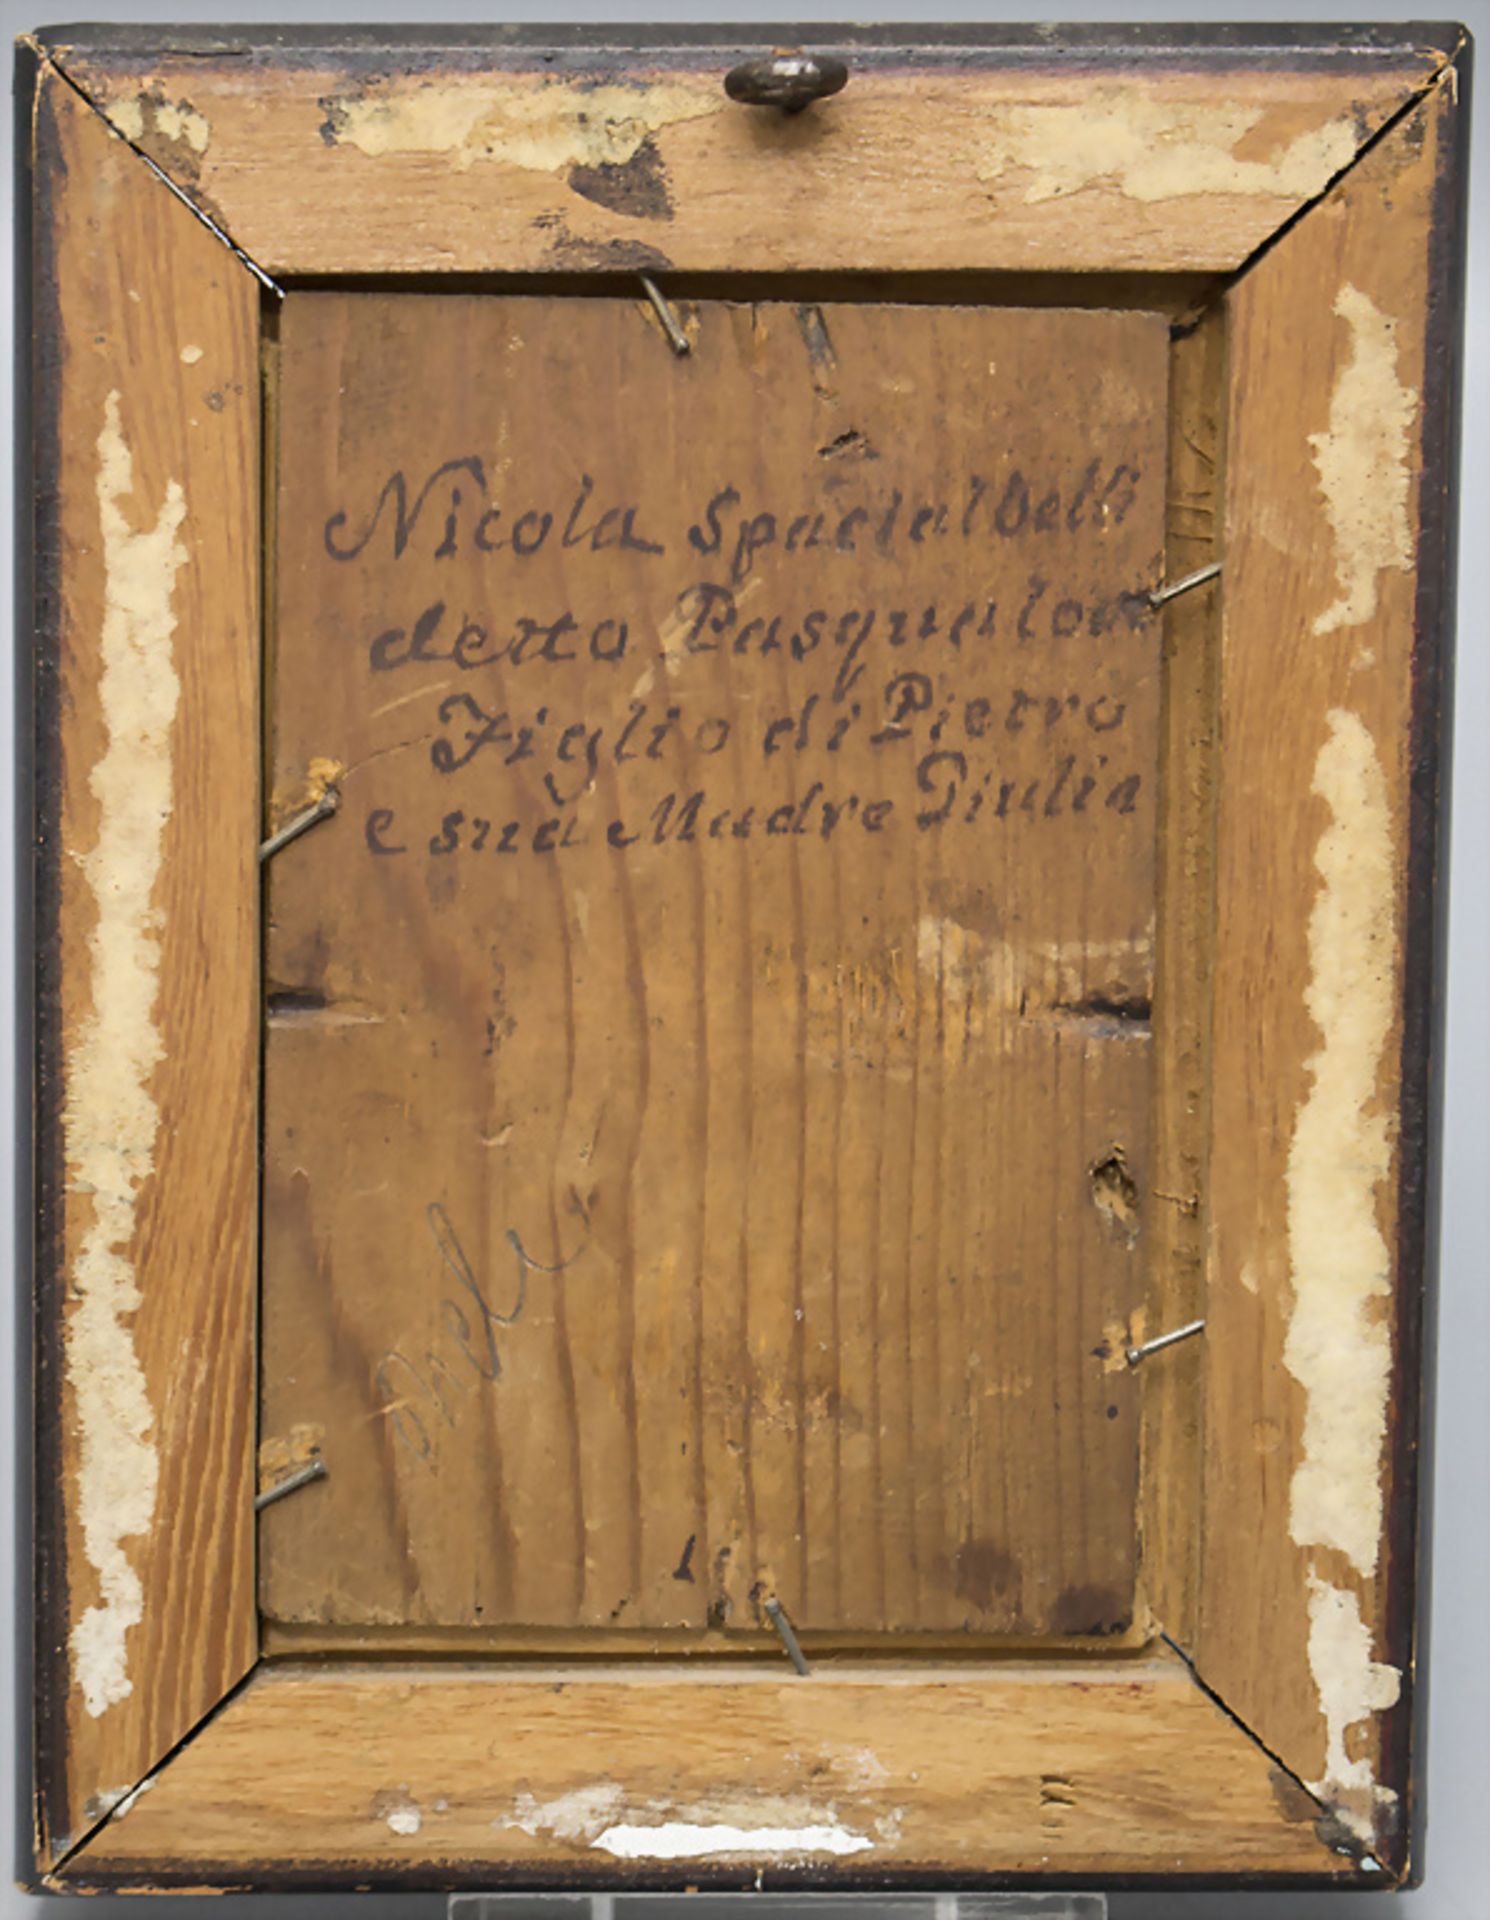 Nicola Spacialbelli
detto Pasqualone
Figlio di Pietro
e sua Madre Giulia